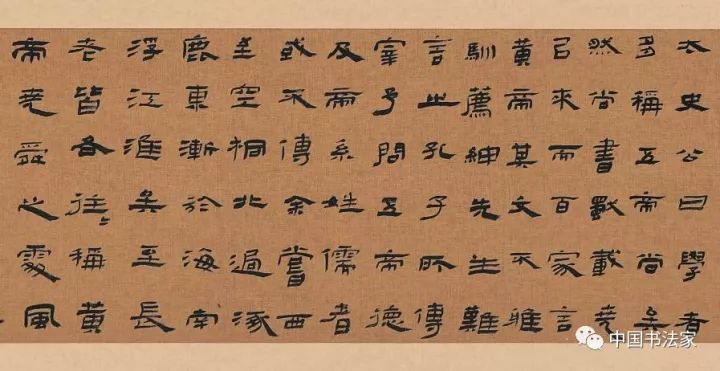 太史公曰學者
多稱五帝尚矣
然尚書獨載堯
以來而百家言
黃帝其文不雅
馴薦紳先生難
言之孔子所傳
宰予問五帝德
及帝系姓儒者
或不傳余嘗西
至空桐北過涿
鹿東漸於海南
浮江淮矣至長
老皆各往〻稱黃
帝堯舜之處風
中国书法家